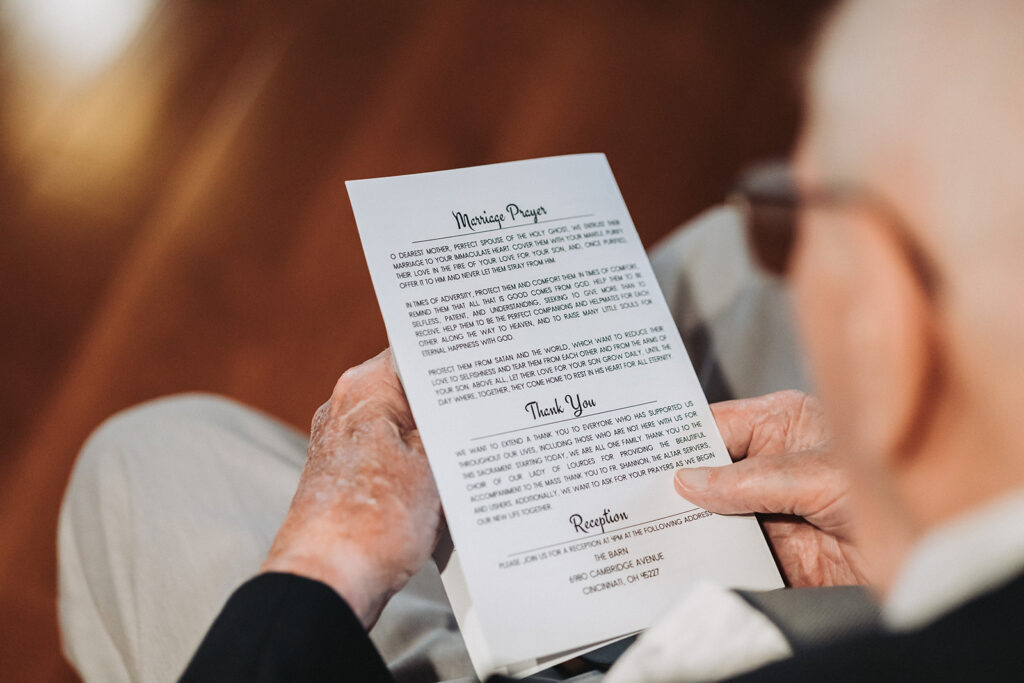 Marriage Prayer
O DEAREST MOTHER, PERFECT SPOUSE OF THE HOLY GHOST, WE ENTRUST THEIR
MARRIAGE TO YOUR IMMACULATE HEART. COVER THEM WITH YOUR MANTLE. PURIFY
THEIR LOVE IN THE FIRE OF YOUR LOVE FOR YOUR SON, AND, ONCE PURIFIED,
OFFER IT TO HIM AND NEVER LET THEM STRAY FROM HIM.
IN TIMES OF ADVERSITY, PROTECT THEM AND COMFORT THEM. IN TIMES OF COMFORT,
REMIND THEM THAT ALL THAT IS GOOD COMES FROM GOD. HELP THEM TO BE
SELFLESS, PATIENT, AND UNDERSTANDING, SEEKING TO GIVE MORE THAN TO
RECEIVE. HELP THEM TO BE THE PERFECT COMPANIONS AND HELPMATES FOR EACH
OTHER ALONG THE WAY TO HEAVEN, AND TO RAISE MANY LITTLE SOULS FOR
ETERNAL HAPPINESS WITH GOD.
PROTECT THEM FROM SATAN AND THE WORLD, WHICH WANT TO REDUCE THEIR
LOVE TO SELFISHNESS AND TEAR THEM FROM EACH OTHER AND FROM THE ARMS OF
YOUR SON. ABOVE ALL, LET THEIR LOVE FOR YOUR SON GROW DAILY, UNTIL THE
DAY WHERE, TOGETHER, THEY COME HOME TO REST IN HIS HEART FOR ALL ETERNITY.
Thank You
WE WANT TO EXTEND A THANK YOU TO EVERYONE WHO HAS SUPPORTED US
THROUGHOUT OUR LIVES, INCLUDING THOSE WHO ARE NOT HERE WITH US FOR
THIS SACRAMENT. STARTING TODAY, WE ARE ALL ONE FAMILY. THANK YOU TO THE
CHOIR OF OUR LADY OF LOURDES FOR PROVIDING THE BEAUTIFUL
ACCOMPANIMENT TO THE MASS. THANK YOU TO FR. SHANNON, THE ALTAR SERVERS,
AND USHERS. ADDITIONALLY, WE WANT TO ASK FOR YOUR PRAYERS AS WE BEGIN
OUR NEW LIFE TOGETHER.
Reception
PLEASE JOIN US FOR A RECEPTION AT 4PM AT THE FOLLOWING ADDRESS
THE BARN
6980 CAMBRIDGE AVENUE
CINCINATI, OH 45227